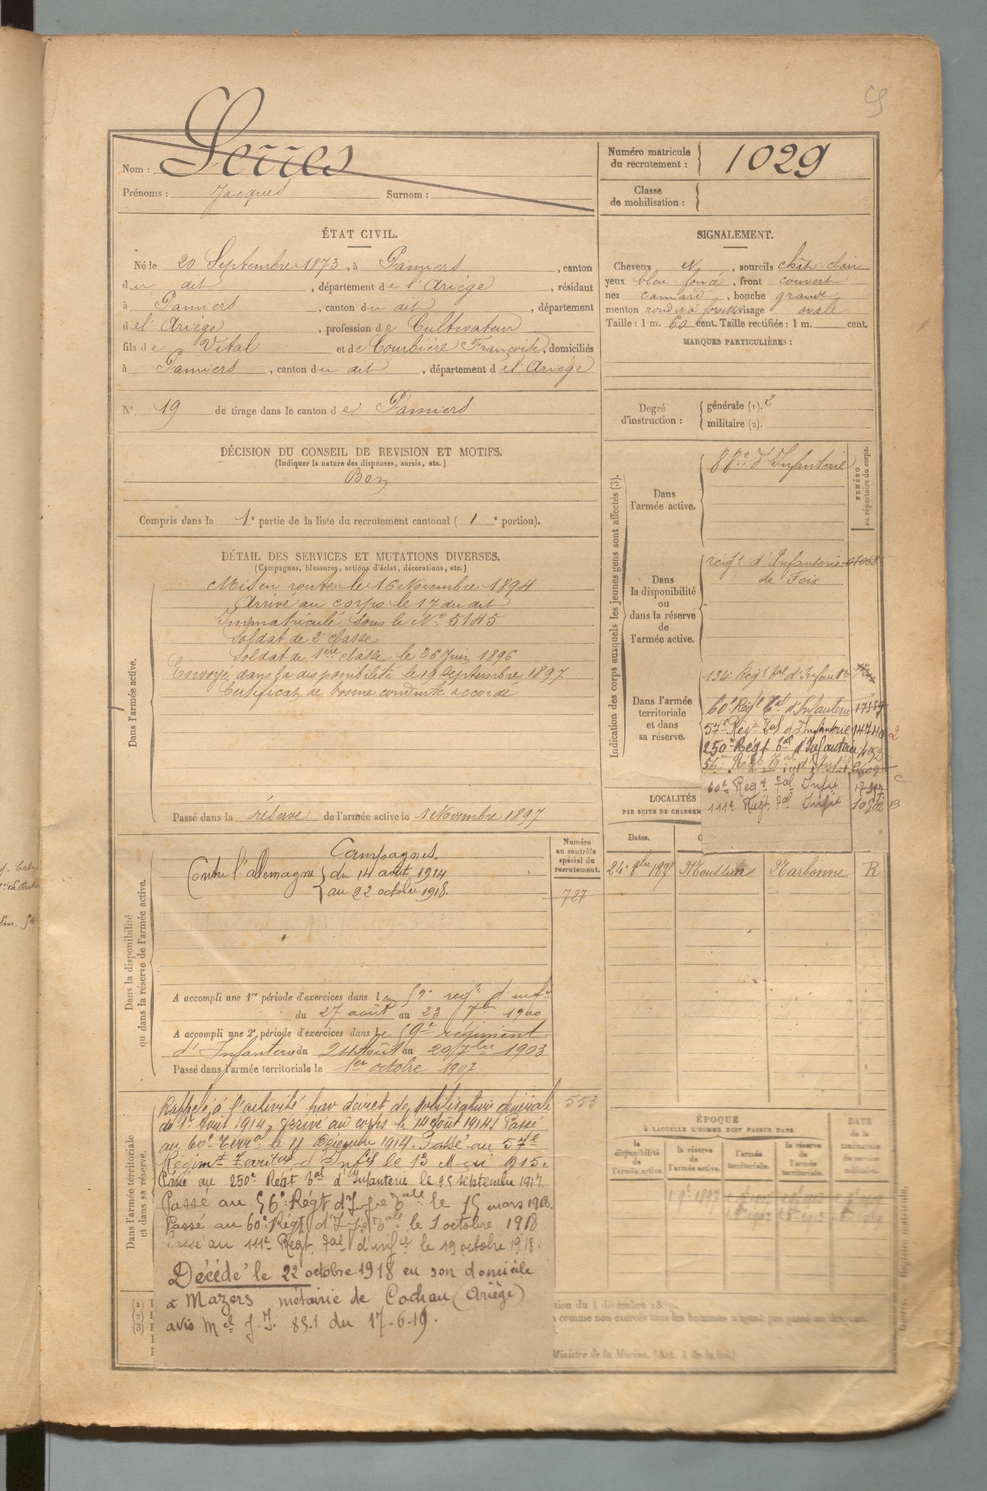 Nom : Serres
Prénoms : Jacques Surnom :
Numéro matricule du recrutement : 1029
Classe de mobilisation :
ÉTAT CIVIL.
Né le 20 Septembre 1873, à Pamiers, canton
du dit, département de l'Ariège, résidant
à Pamiers, canton du dit, département
de l'Ariège, profession de Cultivateur
fils de Vital et de Courbière Françoise, domiciliés
à Pamiers, canton du dit, département de l'Ariège
N° 19 de tirage dans le canton de Pamiers
SIGNALEMENT.
Cheveux N, sourcils chât. clair
yeux bleu foncé, front couvert
nez camard, bouche grande
menton rond à fossette visage ovale
Taille : 1 m. 60 cent. Taille rectifiée : 1 m. cent.
MARQUES PARTICULIÈRES :
Degré d'instruction : générale (1). 2
militaire (2).
DÉCISION DU CONSEIL DE REVISION ET MOTIFS.
(Indiquer la nature des dispenses, sursis, etc.)
Bon
Compris dans la 1e partie de la liste du recrutement cantonal ( 1e portion).
DÉTAIL DES SERVICES ET MUTATIONS DIVERSES.
(Campagnes, blessures, actions d'éclat, décorations, etc.)
Dans l'armée active.
Mis en route le 16 Novembre 1894
Arrivé au corps le 17 du dit
Immatriculé sous le N° 5185
Soldat de 2e classe
Soldat de 1ère classe le 26 Juin 1896
Envoyé dans la disponibilité le 19 Septembre 1897
Certificat de bonne conduite accordé
Passé dans la réserve de l'armée active le 1 Novembre 1897
Indication des corps auxquels les jeunes gens sont affectés (3).
NUMÉRO au répertoire du corps.
Dans l'armée active.
88e d'Infanterie
Dans la disponibilité ou dans la réserve de l'armée active.
régt d'Infanterie
de Foix
Dans l'armée territoriale et dans sa réserve.
134e Régt tal d'Infant
60e Régt tal d'Infanterie
57e Régt tal d'Infanterie
250e Régt tal d'Infanterie
56e Régt tal d'Infie
60e Régt tal Infie
111e Régt tal Infie
LOCALITÉS
PAR SUITE DE CHANGEM
Dates.
Moussan Narbonne R
Dans la disponibilité ou dans la réserve de l'armée active.
Numéro au contrôle spécial du recrutement.
787
Campagnes.
Contre l'allemagne du 14 août 1914
au 22 octobre 1918
A accompli une 1re période d'exercices dans le 59e régt d'infie
du 27 août au 23 7bre 1900
A accompli une 2e période d'exercices dans le 59e régiment
d'Infanterie du 24 Août au 20 7bre 1903
Passé dans l'armée territoriale le 1er octobre 1907
Dans l'armée territoriale et dans sa réserve.
553
Rappelé à l'activité par décret de mobilisation générale
du 1er Août 1914, arrivé au corps le 14 août 1914. Passé
au 60e Terral le 11 Décembre 1914. Passé au 57e
Régimt Territal d'Infie le 13 Mai 1915.
Passé au 250e Régt tal d'Infanterie le 25 septembre 1917
Passé au 56e Régt d'Infie tale le 15 mars 1918
Passé au 60e Régt d'Infie tale le 1 octobre 1918
Passé au 111e Régt tal d'infie le 19 octobre 1918.
Décédé le 22 octobre 1918 en son domicile
à Mazères métairie de Cochau (Ariège)
avis Mel J.I. 851 du 17-6-19.
ÉPOQUE
À LAQUELLE L'HOMME DOIT PASSER DANS
la disponibilité de l'armée active. la réserve de l'armée active. l'armée territoriale. la réserve de l'armée territoriale.
DATE de la libération du service militaire.
Ministre de la Marine. (Art. 4 de la loi.)